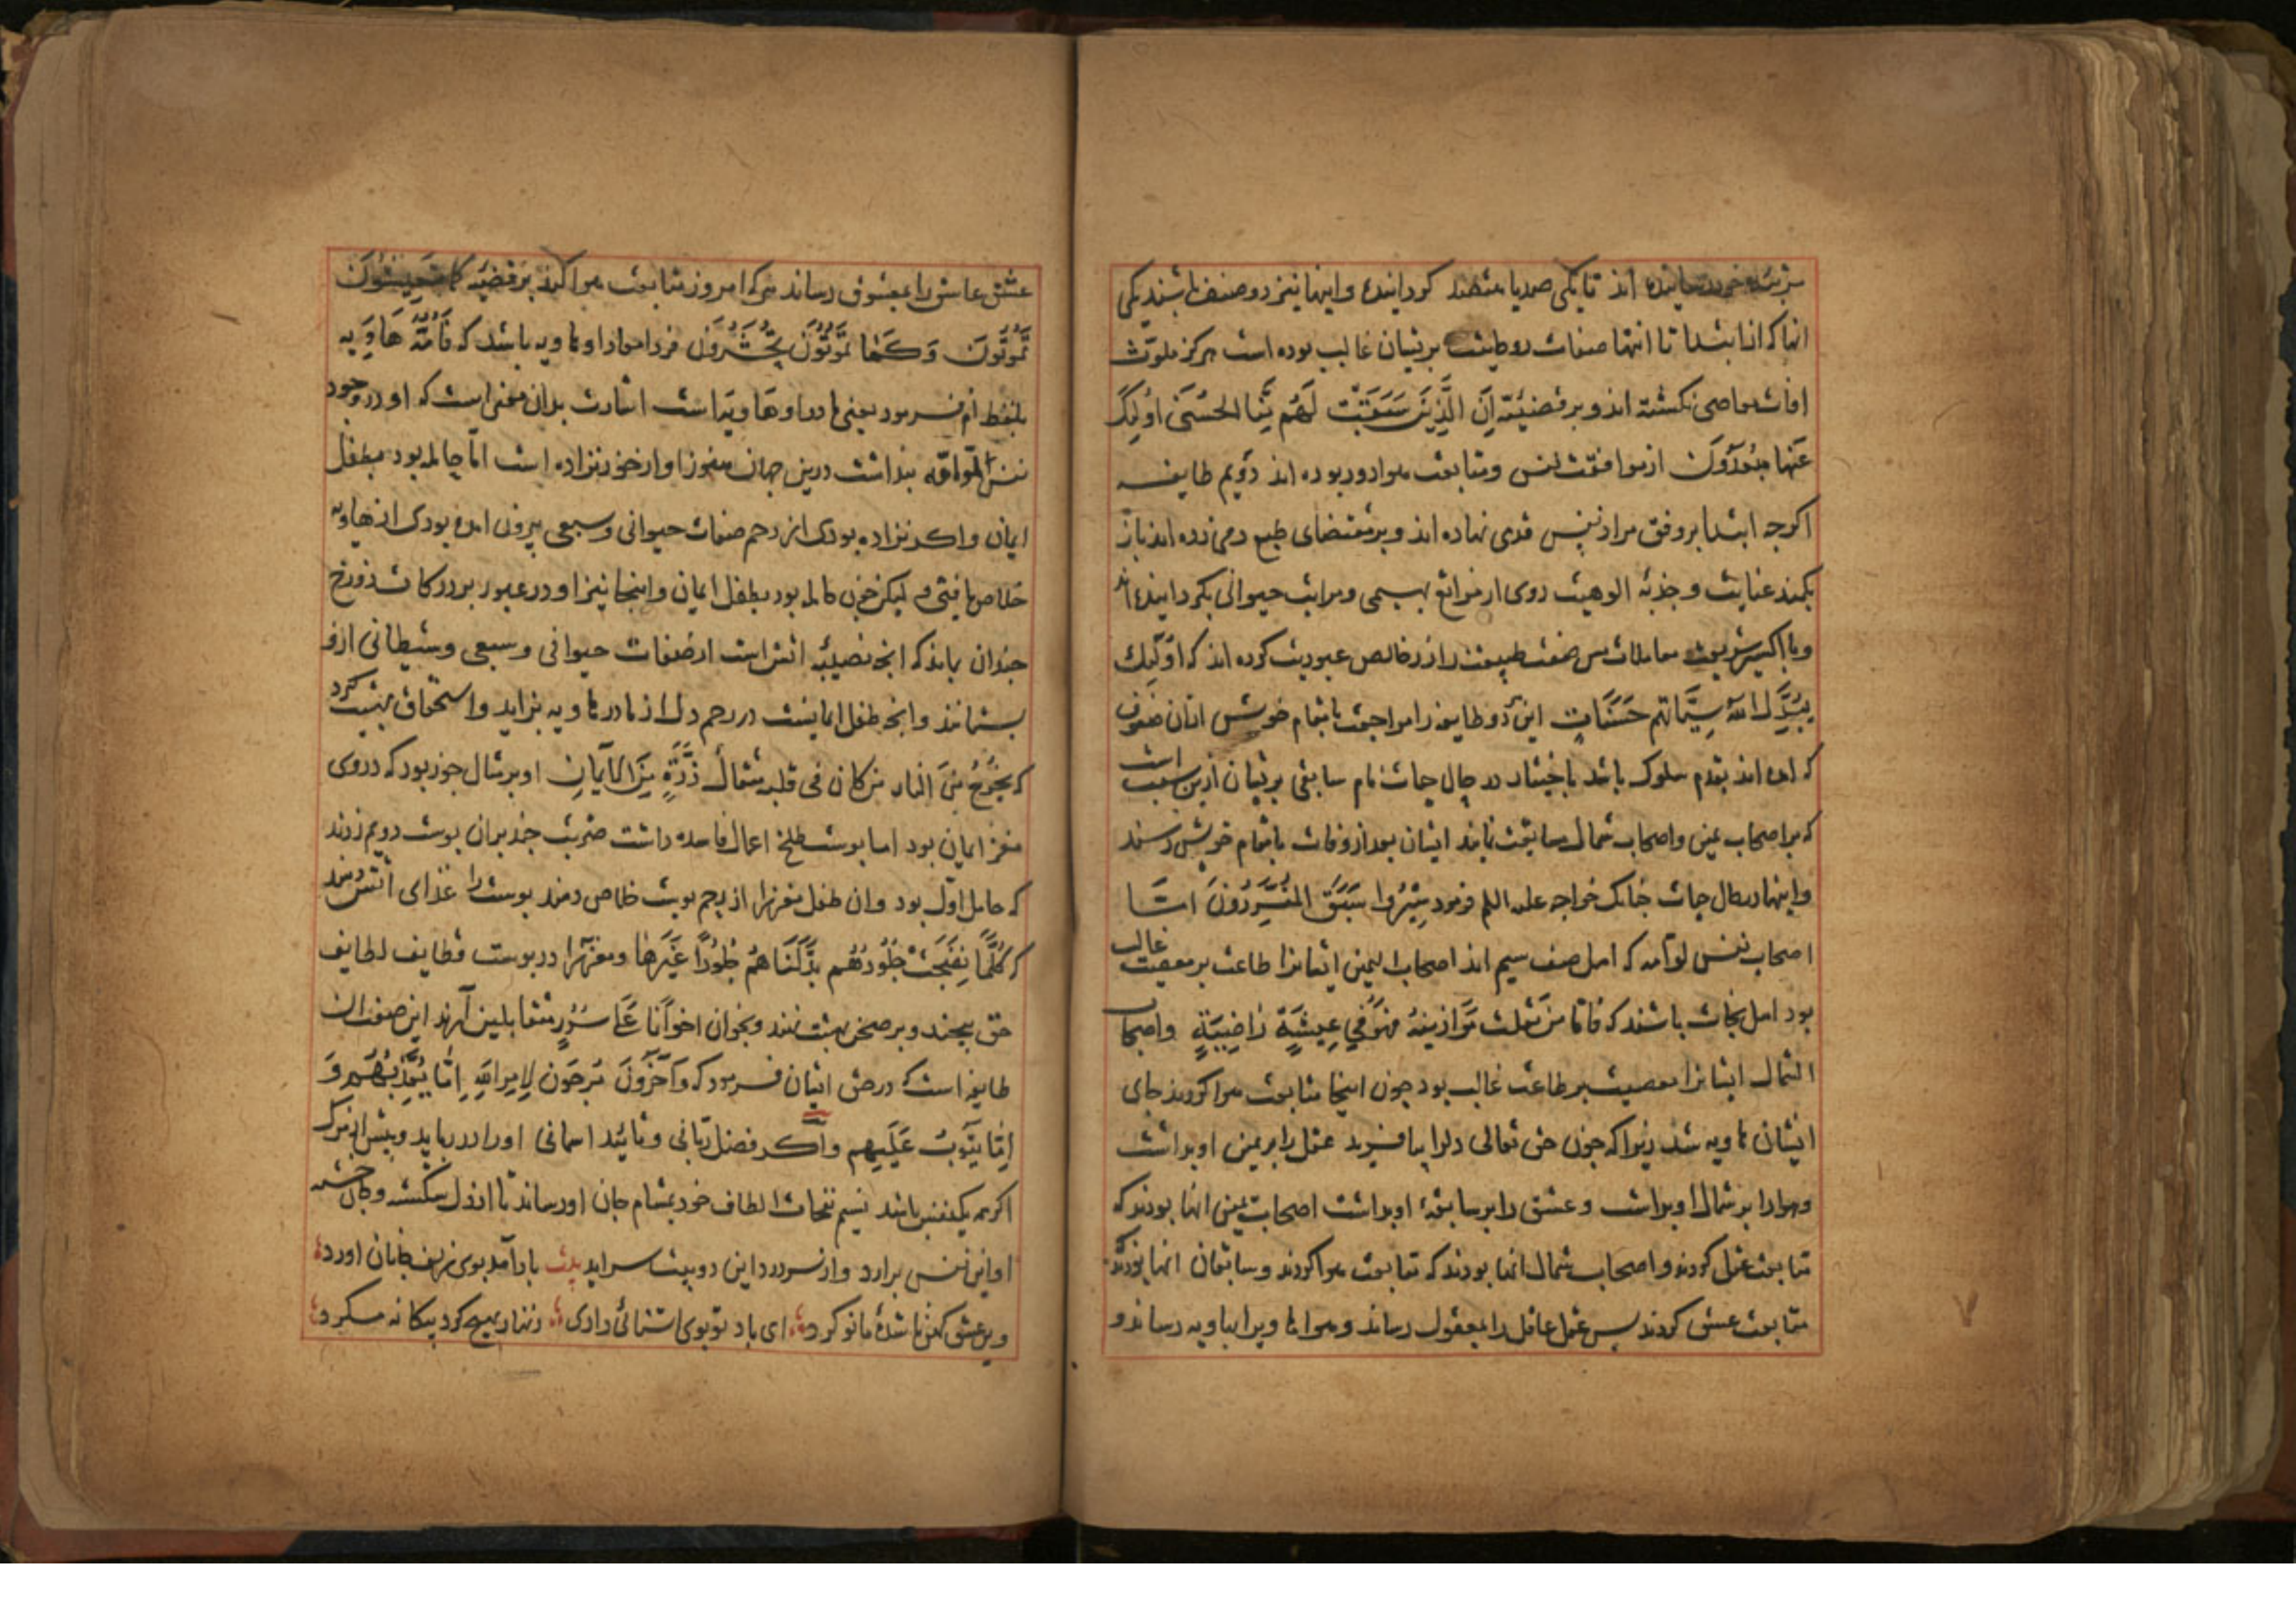 اند تا یکی صمد یا مقصد کردانیده و اینها نیز دو صنف باشند یکی
انها که از ابتدا تا انتها صفات روحانیت بریشان غالب بوده است هرکز ملوث
افات معاصی نکشته اند و بر قضیّه اِنَّ الَّذِینَ سَبَقَتْ لَهُم مِنَّا الحُسنَی اُولئِکَ
عَنهَا مبعَدُونَ از موافقت نفس و متابعت هوا دور بوده اند دویم طایفه
اکرچه ابتدا بر وفق مراد نفس قدمی نهاده اند و بر مقتضای طبع دمی زده اند باز
بکمند عنایت و جذبه الوهیت روی از مراتع بهیمی و مراتب حیوانی بکردانیده اند
و با اکسیر شریعت معاملات مس صفت طبیعت را زر خالص عبودیت کرده اند که اُولئِکَ
یُبَدِّلُ اللّه سَیِّئَاتِهِم حَسَنَاتٍ این دو طایفه را مراجعت بامقام خویش اتان صفوف
که امده اند بقدم سلوک باشد باختیار در حال حیات نام سابقی بریشان ازین سبب است
که بر اصحاب یمین و اصحاب شمال سابقت نمایند ایشان بعد از وفات بامقام خویش رسند
و اینها در حال حیات چنانک خواجه علیه السلم فرمود سِیرُوا سَبَقَ المُفَرِّدُونَ امّا
اصحاب نفس لوّامه که اهل صف سیم اند اصحاب الیمین ایشانرا طاعت بر معصیت غالب
بود اهل نجات باشند که فَامّا مَن ثَقُلَت مَوَازِینُهُ فَهُوَ فِی عِیشَةٍ رَاضِیَةٍ و اصحاب
الشمال ایشانرا معصیت بر طاعت غالب بود چون اینجا متابعت هوا کردند جای
ایشان هاویه شد زیرا که چون حق تعالی دلرا بیافرید عقل را بر یمین او بداشت
و هوا را بر شمال او بداشت و عشق را بر سابقهٔ او بداشت اصحاب یمین انها بودند که
متابعت عقل کردند و اصحاب شمال انها بودند که متابعت هوا کردند و سابقان انها بودند که
متابعت عشق کردند پس عقل عاقل را بمعقول رساند و هوا هاویرا بهاویه رساند و
عشق عاشق را بمعشوق رساند هر که امروز متابعت هوا کند بر قضیّه کما تَعِیشُونَ
تَمُوتُونَ وَکَمَا تَمُوتُونَ تُحشَرُونَ فردا مادر او هاویه باشد که فَأُمُّهُ هَاوِیه
بلفظ اُم فرمود یعنی مادر او هَاویَه است اشارت بدان معنی است که او در وجود
نفس لوّامه بنداشت درین جهان هنوز او از خود نزاده است امّا حامله بود بطفل
ایمان و اکر نزاده بودی از رحم صفات حیوانی و سبعی بیرون امده بودی از هاویه
خلاص یافتی و لیکن چون حامله بود بطفل ایمان و اینجا نیز او در عبور بر درکات دوزخ
چندان بماند که انچه نصیبه اتش است از صفات حیوانی و سبعی و شیطانی ازو
بستانند و انچه طفل ایمانست در رحم دل از مادر هاویه بزاید و استحقاق بهشت کیرد
که یَخرُجُ مِنَ النار مَن کان فی قلبه مثقالُ ذَرَّةٍ مِنَ الاِیمَانِ او بر مثال جوز بود که دروی
مغز ایمان بود اما بوست طلخ اعمال فاسده داشت ضربت چند بران بوست دویم زدند
که حامل اوّل بود و ان طفل مغز را از رحم بوست خلاص دهند بوست را غذای اتش دهند
که کُلَّمَا نَضِجَتْ جُلُودُهُم بَدَّلنَاهُم جُلُودًا غَیرَهَا و مغزرا در بوست قطایف لطایف
حق بیچند و بر صحن بهشت نهند و بخوان اخوانًا عَلَی سُرُرٍ متقابلین آرند این صفت ان
طایفه است که در حق ایشان فرمود که وَآخَرُونَ مُرجَونَ لِامرِ اللّهِ اِمَّا یُعَذِّبُهُم وَ
اِمَّا یَتُوبُ عَلَیهِم و اکر فضل ربّانی و تایید اسمانی او را دریابد و بیش از مرک
اکر همه یک نفس باشد نسیم نفحات الطاف خود بمشام جان او رساند تا از دل شکسته و جان خسته
او این نفس برارد و از سر درد این دو بیت سراید بیت باد آمد بوی زلف جانان اورد
وین عشق کهن ناشدهٔ ما نو کرد ای باد تو بوی اشنائی داری زنهار بهیچ کرد بیکانه مکرد